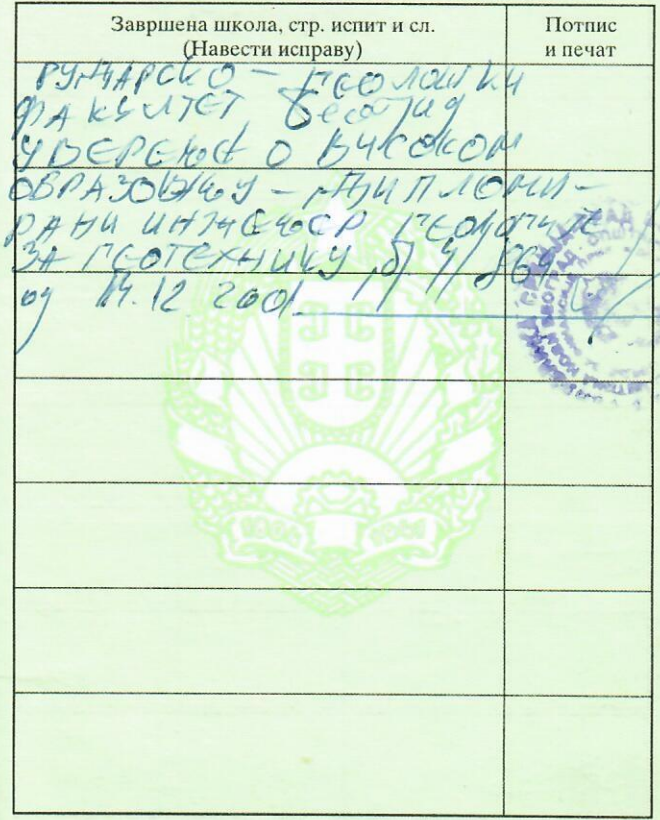 Завршена школа, стр. испит и сл.
(Навести исправу)
Потпис
и печат
РУДАРСКО – ГЕОЛОШКИ
ФАКУЛТЕТ Београд
УВЕРЕЊЕ О ВИСОКОМ
ОБРАЗОВАЊУ – ДИПЛОМИ-
РАНИ ИНЖЕЊЕР ГЕОЛОГИЈЕ
ЗА ГЕОТЕХНИКУ
од 14.12 2001